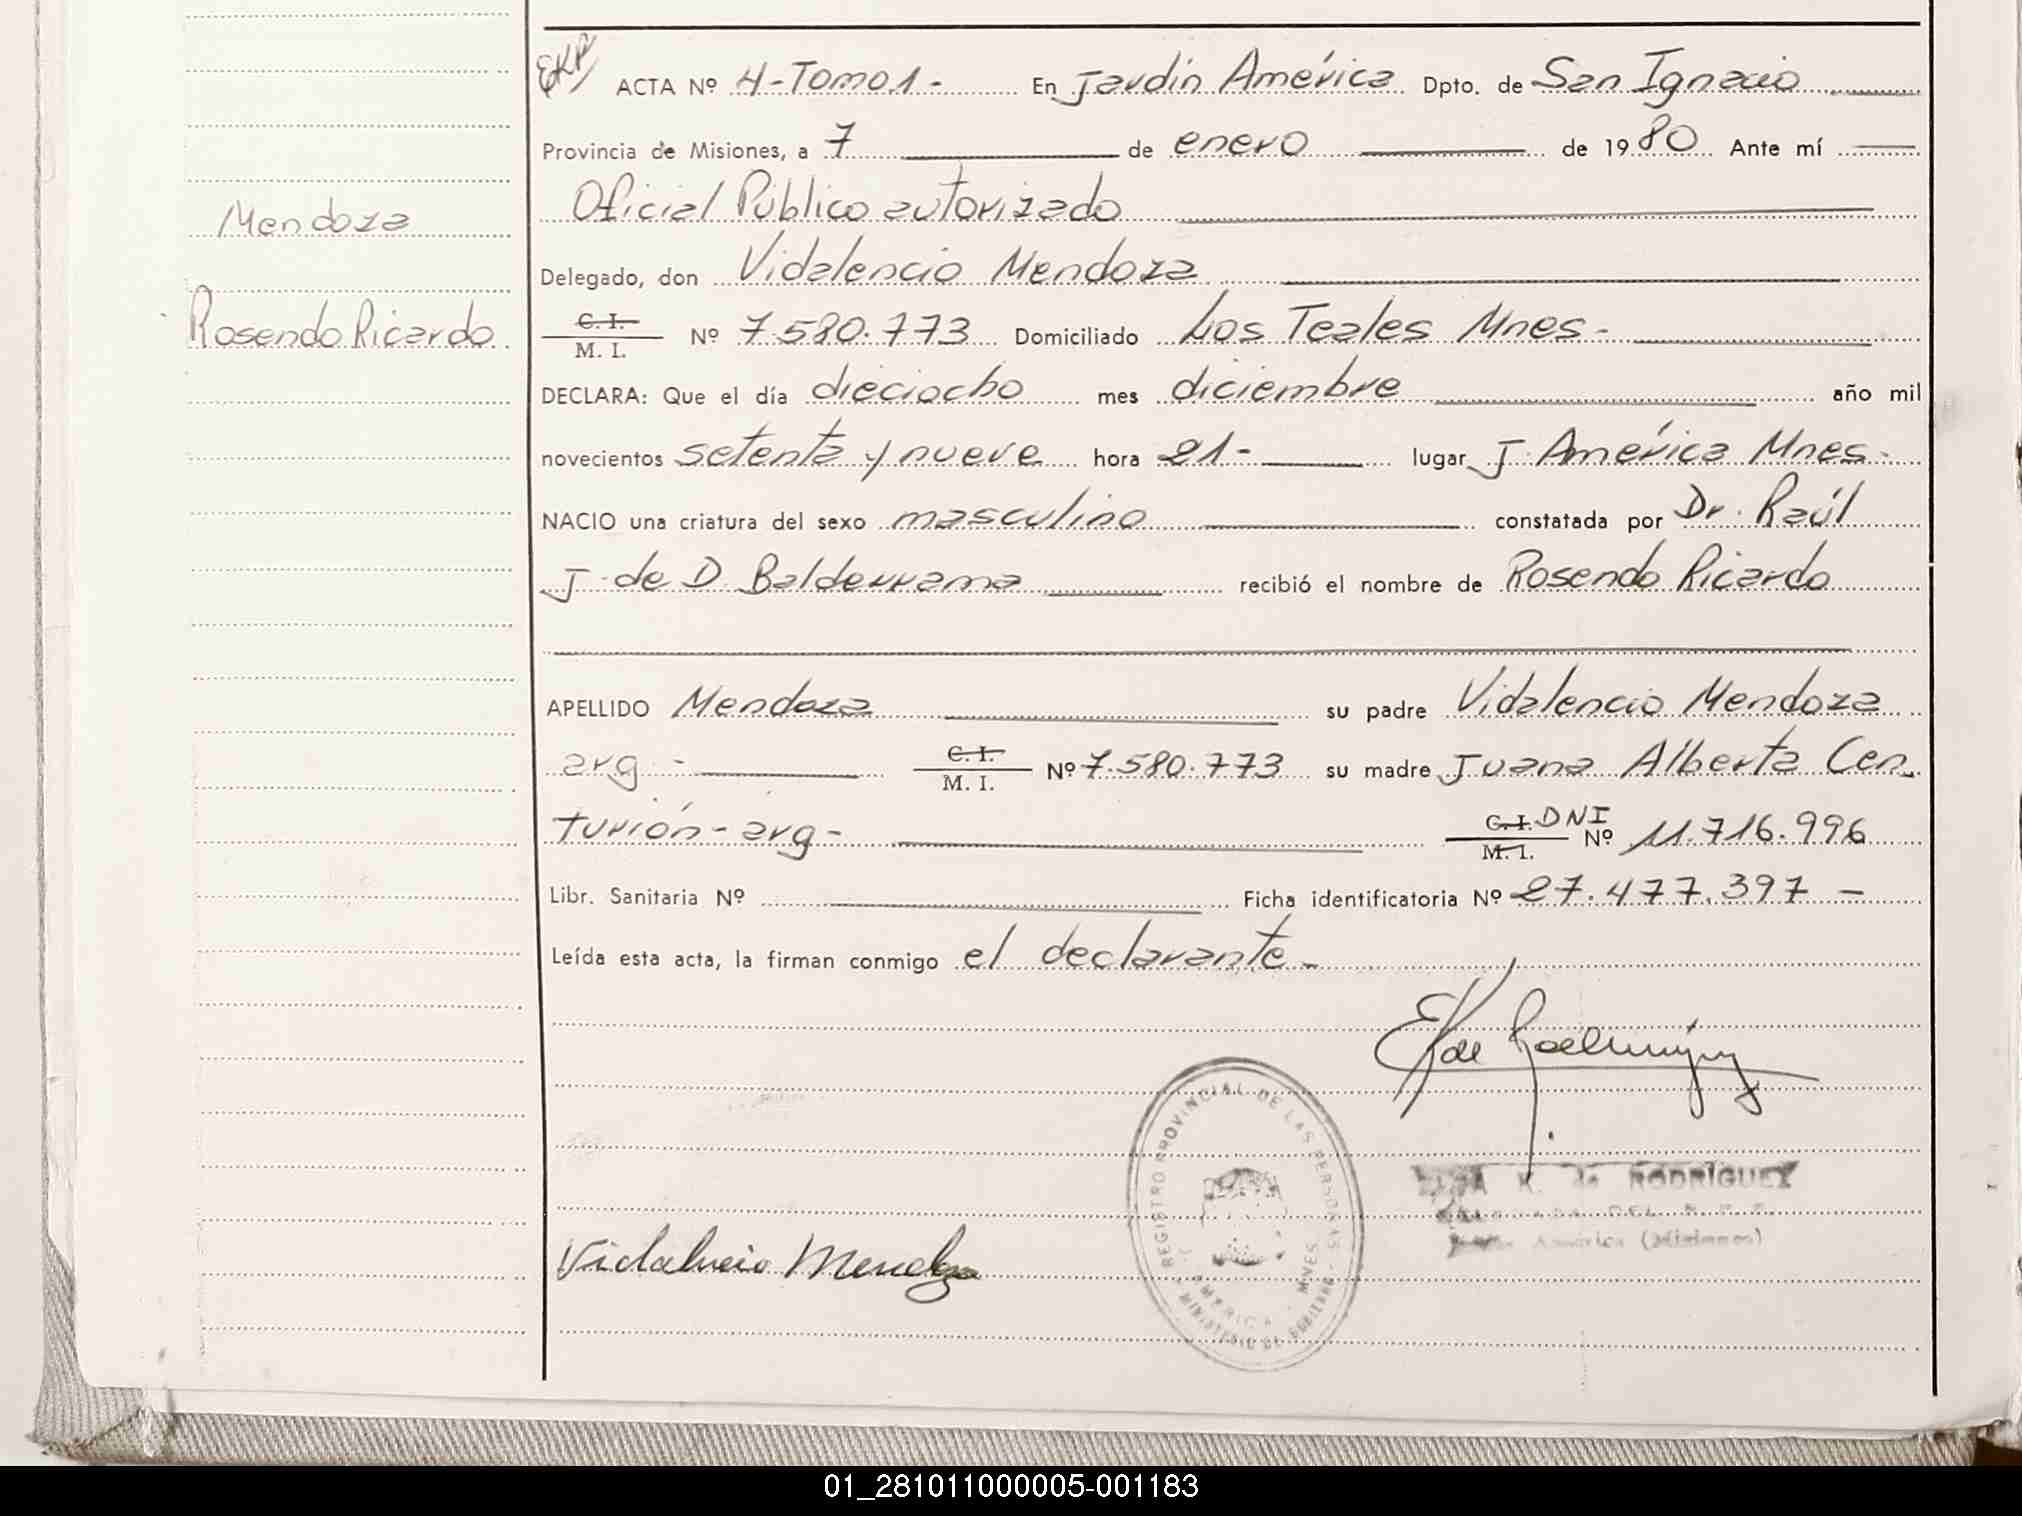 EKR
ACTA Nº 4-Tomo1.- En Jardín América Dpto. de San Ignacio
Provincia de Misiones, a 7 de enero de 1980 Ante mí
Oficial Público autorizado
Mendoza
Delegado, don Vidalencio Mendoza
Rosendo Ricardo
C. I. M. I. Nº 7.580.773 Domiciliado Los Teales Mnes-
DECLARA: Que el día dieciocho mes diciembre año mil
novecientos setenta y nueve hora 21- lugar J. América Mnes-
NACIO una criatura del sexo masculino constatada por Dr. Raúl
J. de D. Balderrama recibió el nombre de Rosendo Ricardo
APELLIDO Mendoza su padre Vidalencio Mendoza
arg - C. I. M. I. Nº 7.580.773 su madre Juana Alberta Cen
turión - arg - C. I. DNI M. I. Nº 11.716.996
Libr. Sanitaria Nº Ficha identificatoria Nº 27.477.397 -
Leída esta acta, la firman conmigo el declarante -
REGISTRO PROVINCIAL DE LAS PERSONAS
AMERICA - MNES
MINISTERIO DE GOBIERNO
K. de RODRÍGUEZ
DEL R. P. P.
América (Misiones)
Vidalencio Mendoza
01_281011000005-001183